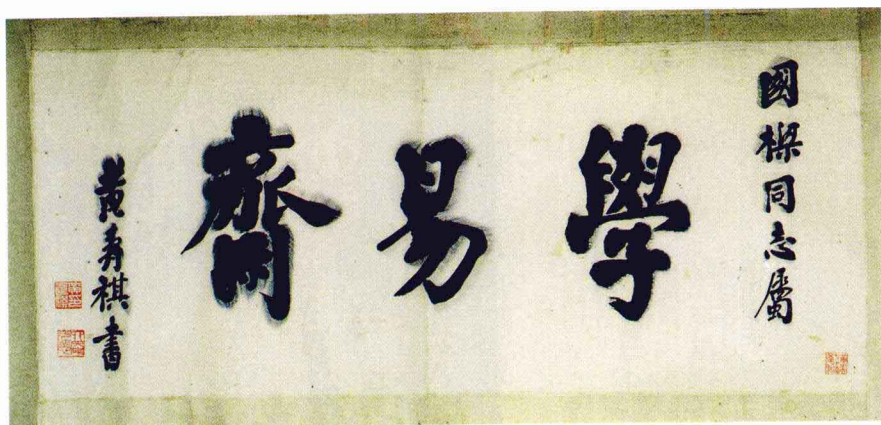 國樑同志屬
學易齋
黃壽祺書